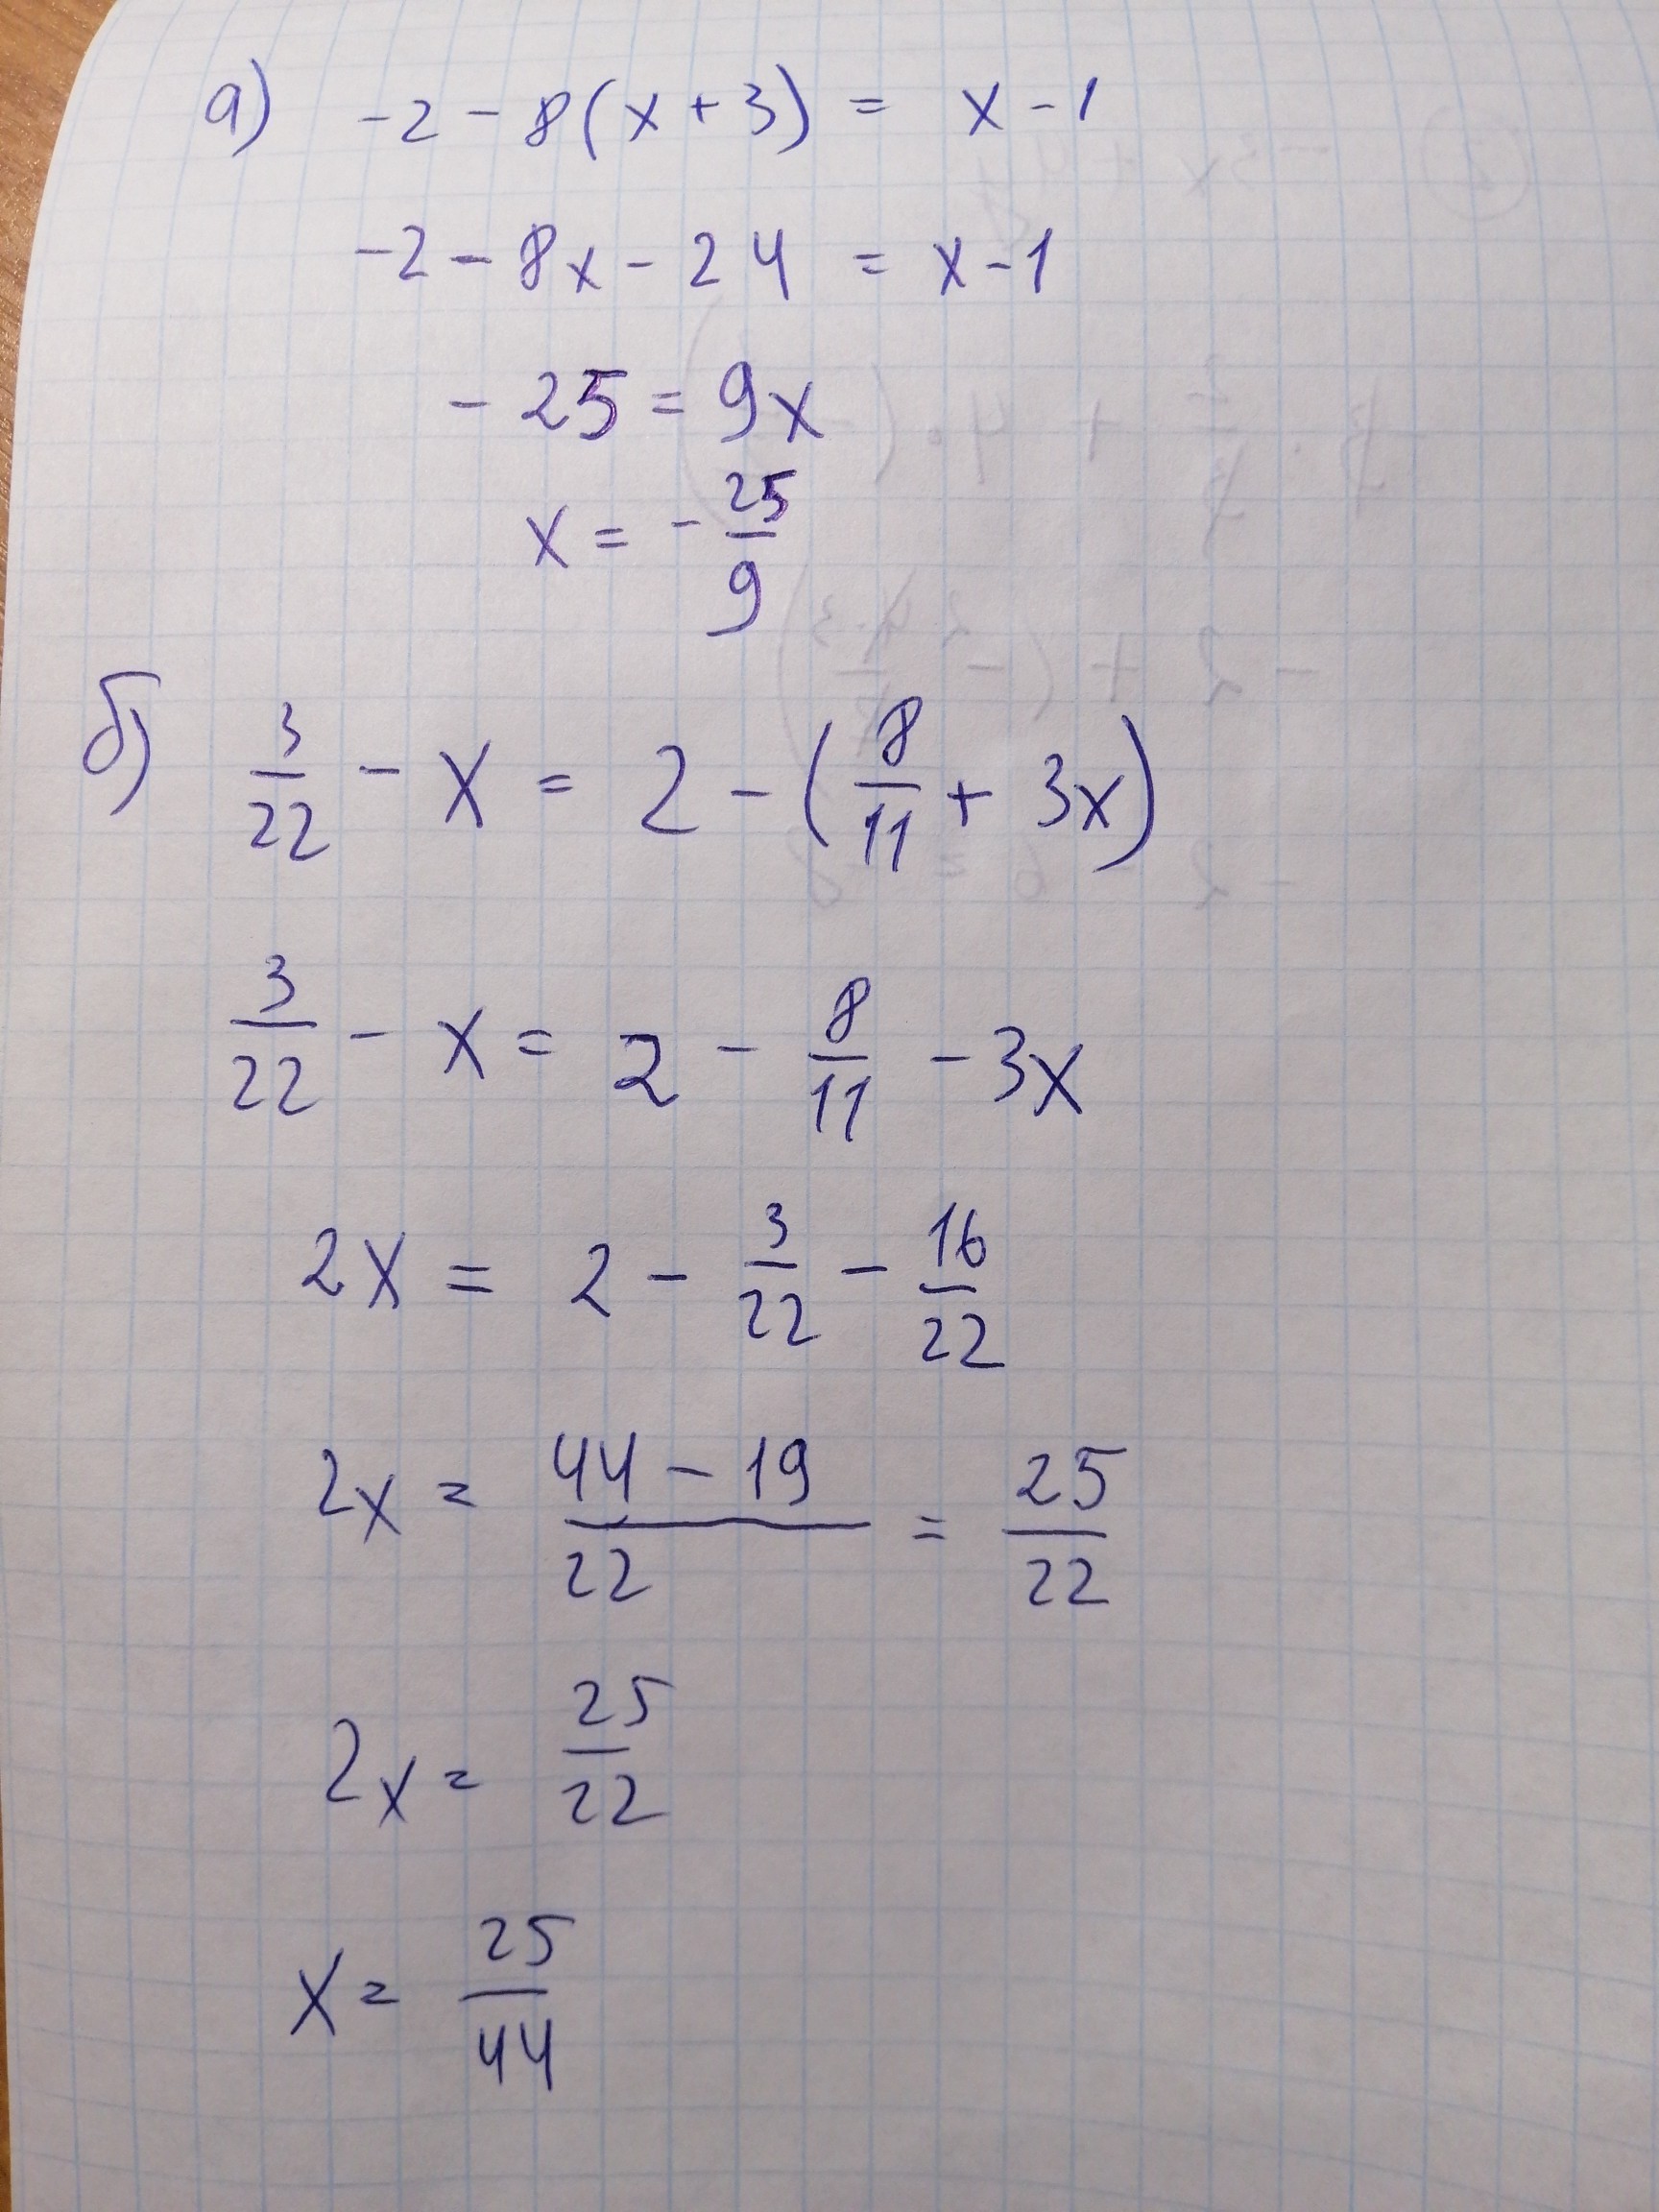 а) -2 - 8(x + 3) = x - 1
-2 - 8x - 24 = x - 1
- 25 = 9x
x = - 25/9
б) 3/22 - x = 2 - (8/11 + 3x)
3/22 - x = 2 - 8/11 - 3x
2x = 2 - 3/22 - 16/22
2x = (44 - 19)/22 = 25/22
2x = 25/22
x = 25/44